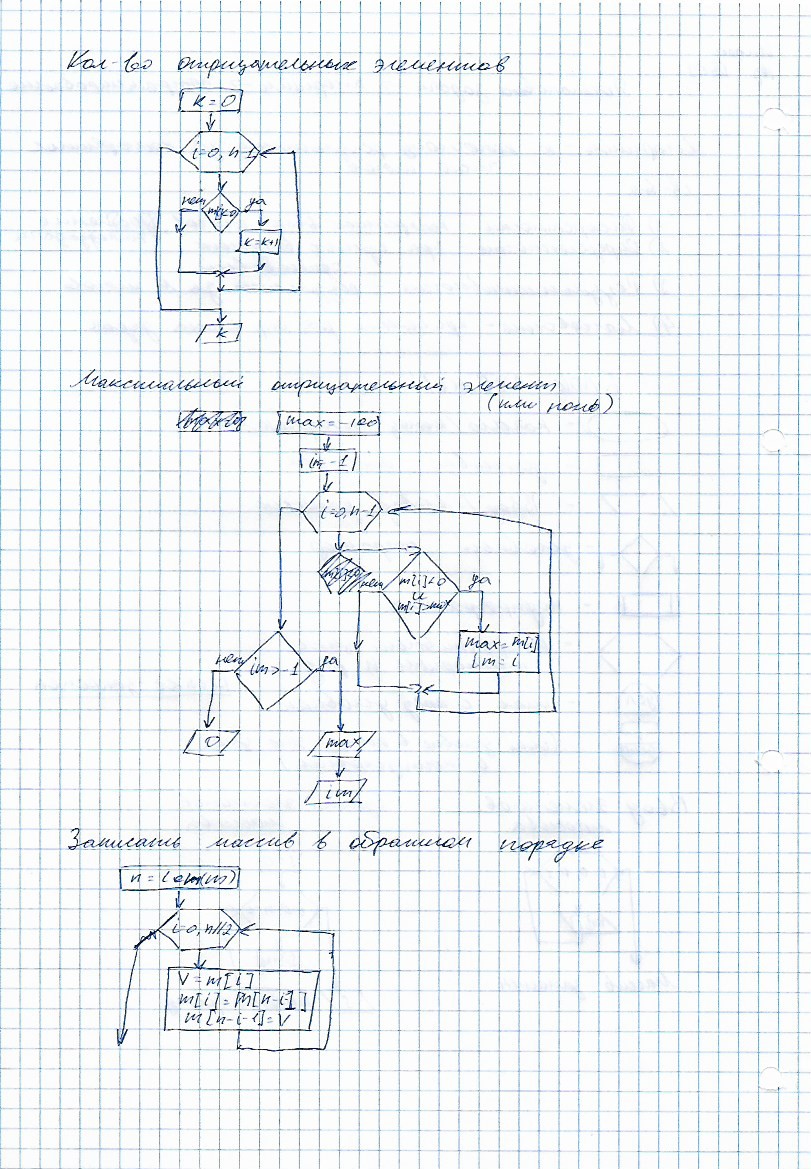 Кол-во отрицательных элементов
k = 0
i=0, n-1
нет m[i]<0 да
k=k+1
k
Максимальный отрицательный элемент
(или ноль)
max = -100
im=-1
i=0, n-1
нет m[i]<0 да
и
m[i]>max
max = m[i]
im = i
нет im > -1 да
0 max
im
Записать массив в обратном порядке
n = len(m)
i=0, n//2
V = m[i]
m[i] = m[n-i-1]
m[n-i-1] = V